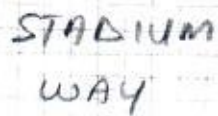 STADIUM
WAY